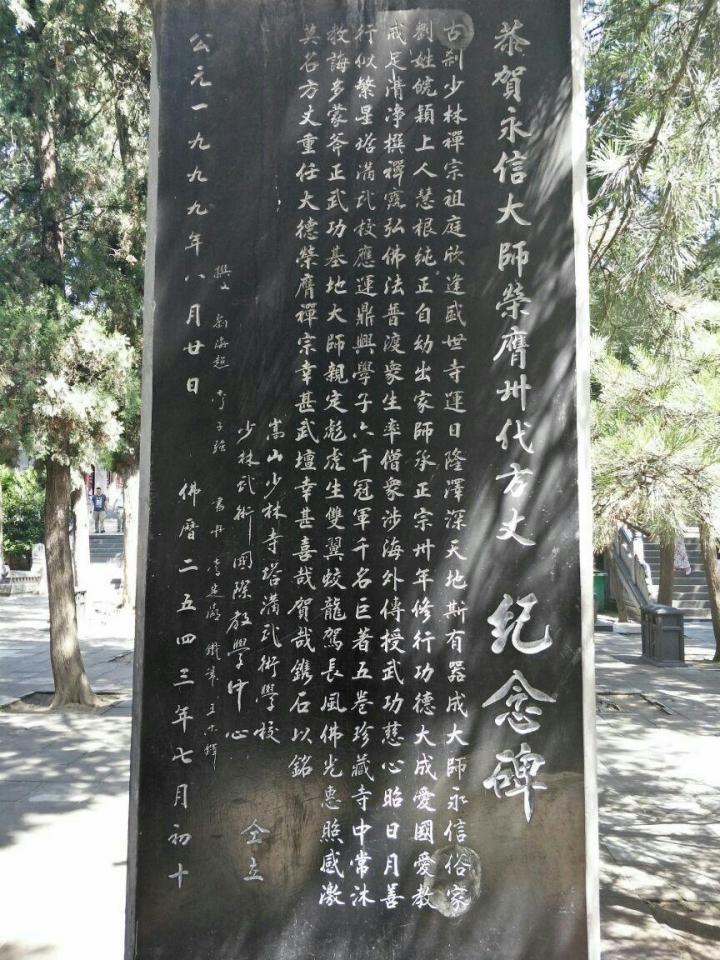 恭賀永信大師榮膺卅代方丈 紀念碑
古刹少林禪宗祖庭欣逢盛世寺運日隆澤深天地斯有器成大師永信俗家
劉姓皖穎上人慧根純正自幼出家師承正宗卅年修行功德大成愛國愛教
戒定清淨撰禪完弘佛法普渡衆生率僧衆涉海外傳授武功慈心昭日月善
行似繁星塔溝武校應運鼎興學子六千冠軍千名巨著五卷珍藏寺中常沐
教誨多蒙斧正武功基地大師親定彪虎生雙翼蛟龍駕長風佛光惠照感激
莫名方丈重任大德榮膺禪宗幸甚武壇幸甚喜哉賀哉鐫石以銘
嵩山少林寺塔溝武術學校
少林武術國際教學中心
仝立
撰文 李子强 書丹 鐵筆
公元一九九九年八月廿日 佛曆二五四三年七月初十